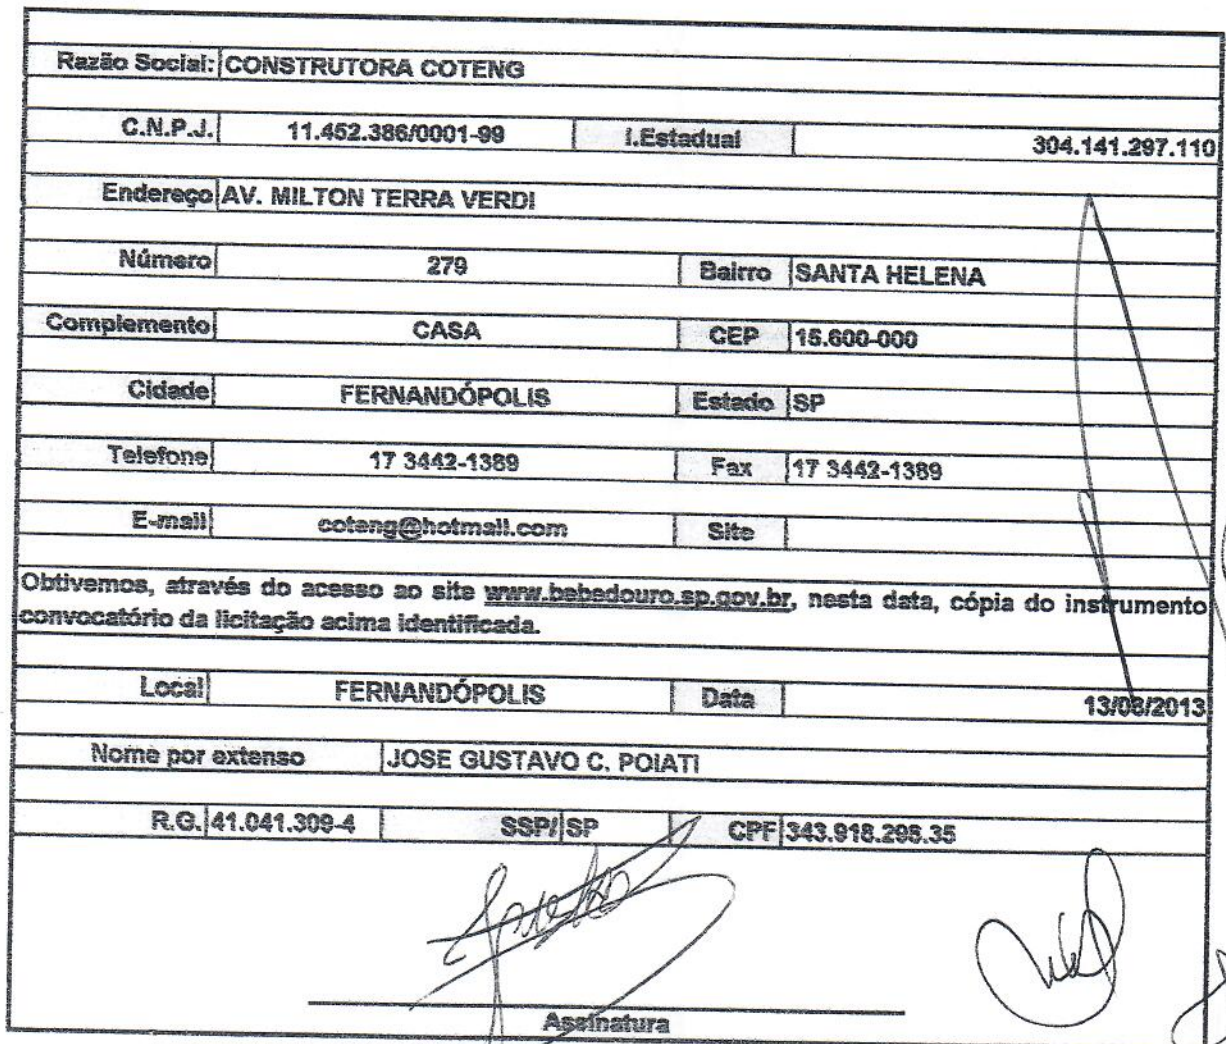 Razão Social: CONSTRUTORA COTENG
C.N.P.J. 11.452.386/0001-99 I.Estadual 304.141.297.110
Endereço AV. MILTON TERRA VERDI
Número 279 Bairro SANTA HELENA
Complemento CASA CEP 15.600-000
Cidade FERNANDÓPOLIS Estado SP
Telefone 17 3442-1389 Fax 17 3442-1389
E-mail coteng@hotmail.com Site
Obtivemos, através do acesso ao site www.bebedouro.sp.gov.br, nesta data, cópia do instrumento
convocatório da licitação acima identificada.
Local FERNANDÓPOLIS Data 13/08/2013
Nome por extenso JOSE GUSTAVO C. POIATI
R.G. 41.041.309-4 SSP/ SP CPF 343.918.298.35
Assinatura